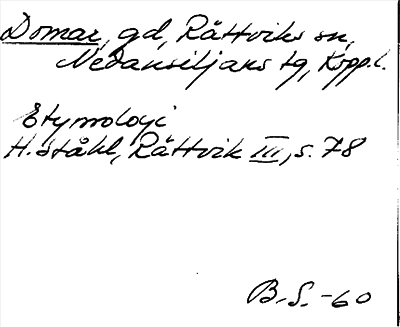 Domar, gd, Rättviks sn,
Nedansiljans tg, Kopp.l.
Etymologi
H. Ståhl, Rättvik III, s. 78
B.S.-60